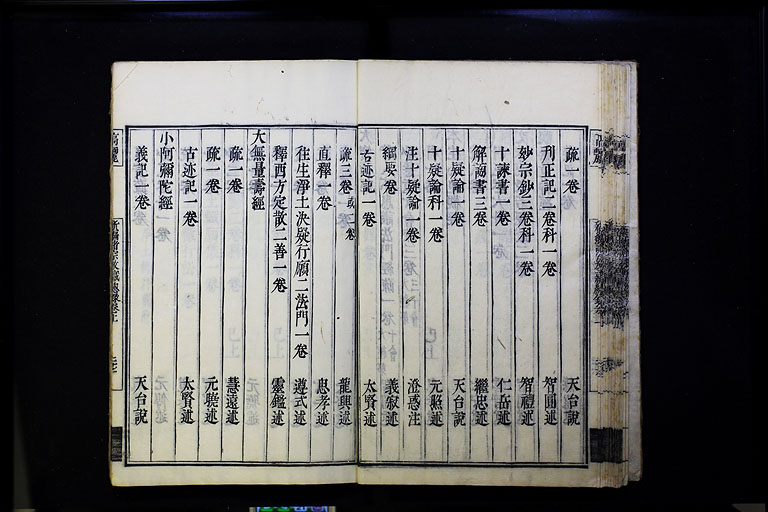 疏一卷 天台說
刋正記二卷科一卷 智圓述
妙宗鈔三卷科一卷 智禮述
十諫書一卷 仁岳述
解謗書三卷 繼忠述
十疑論一卷 天台說
十疑論科一卷 元照述
注十疑論一卷 澄彧注
綱要一卷 義寂述
古迹記一卷 太賢述
疏三卷或二卷 龍興述
直釋一卷 忠孝述
往生淨土決疑行願二法門一卷 遵式述
釋西方定散二善一卷 靈鑑述
大無量壽經
疏一卷 慧遠述
疏一卷 元曉述
古迹記一卷 太賢述
小阿彌陀經
義記一卷 天台說